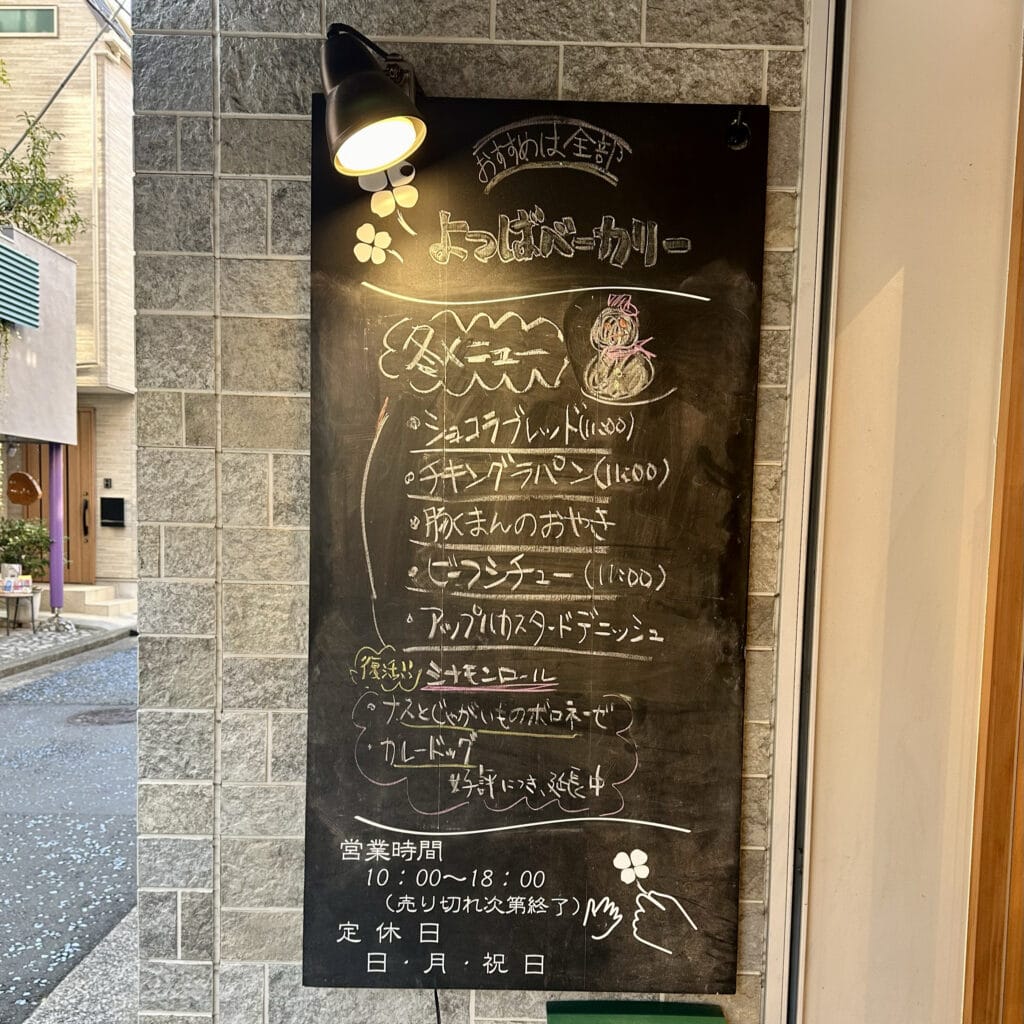 おすすめは全部
よつばベーカリー
冬メニュー
・ショコラブレッド(11:00)
・チキングラパン(11:00)
・豚くまんのおやき
・ビーフシチュー(11:00)
・アップルカスタードデニッシュ
復活!! シナモンロール
・ナスとじゃがいものボロネーゼ
・カレードッグ
好評につき、延長中
営業時間
10:00～18:00
(売り切れ次第終了)
定休日
日・月・祝日